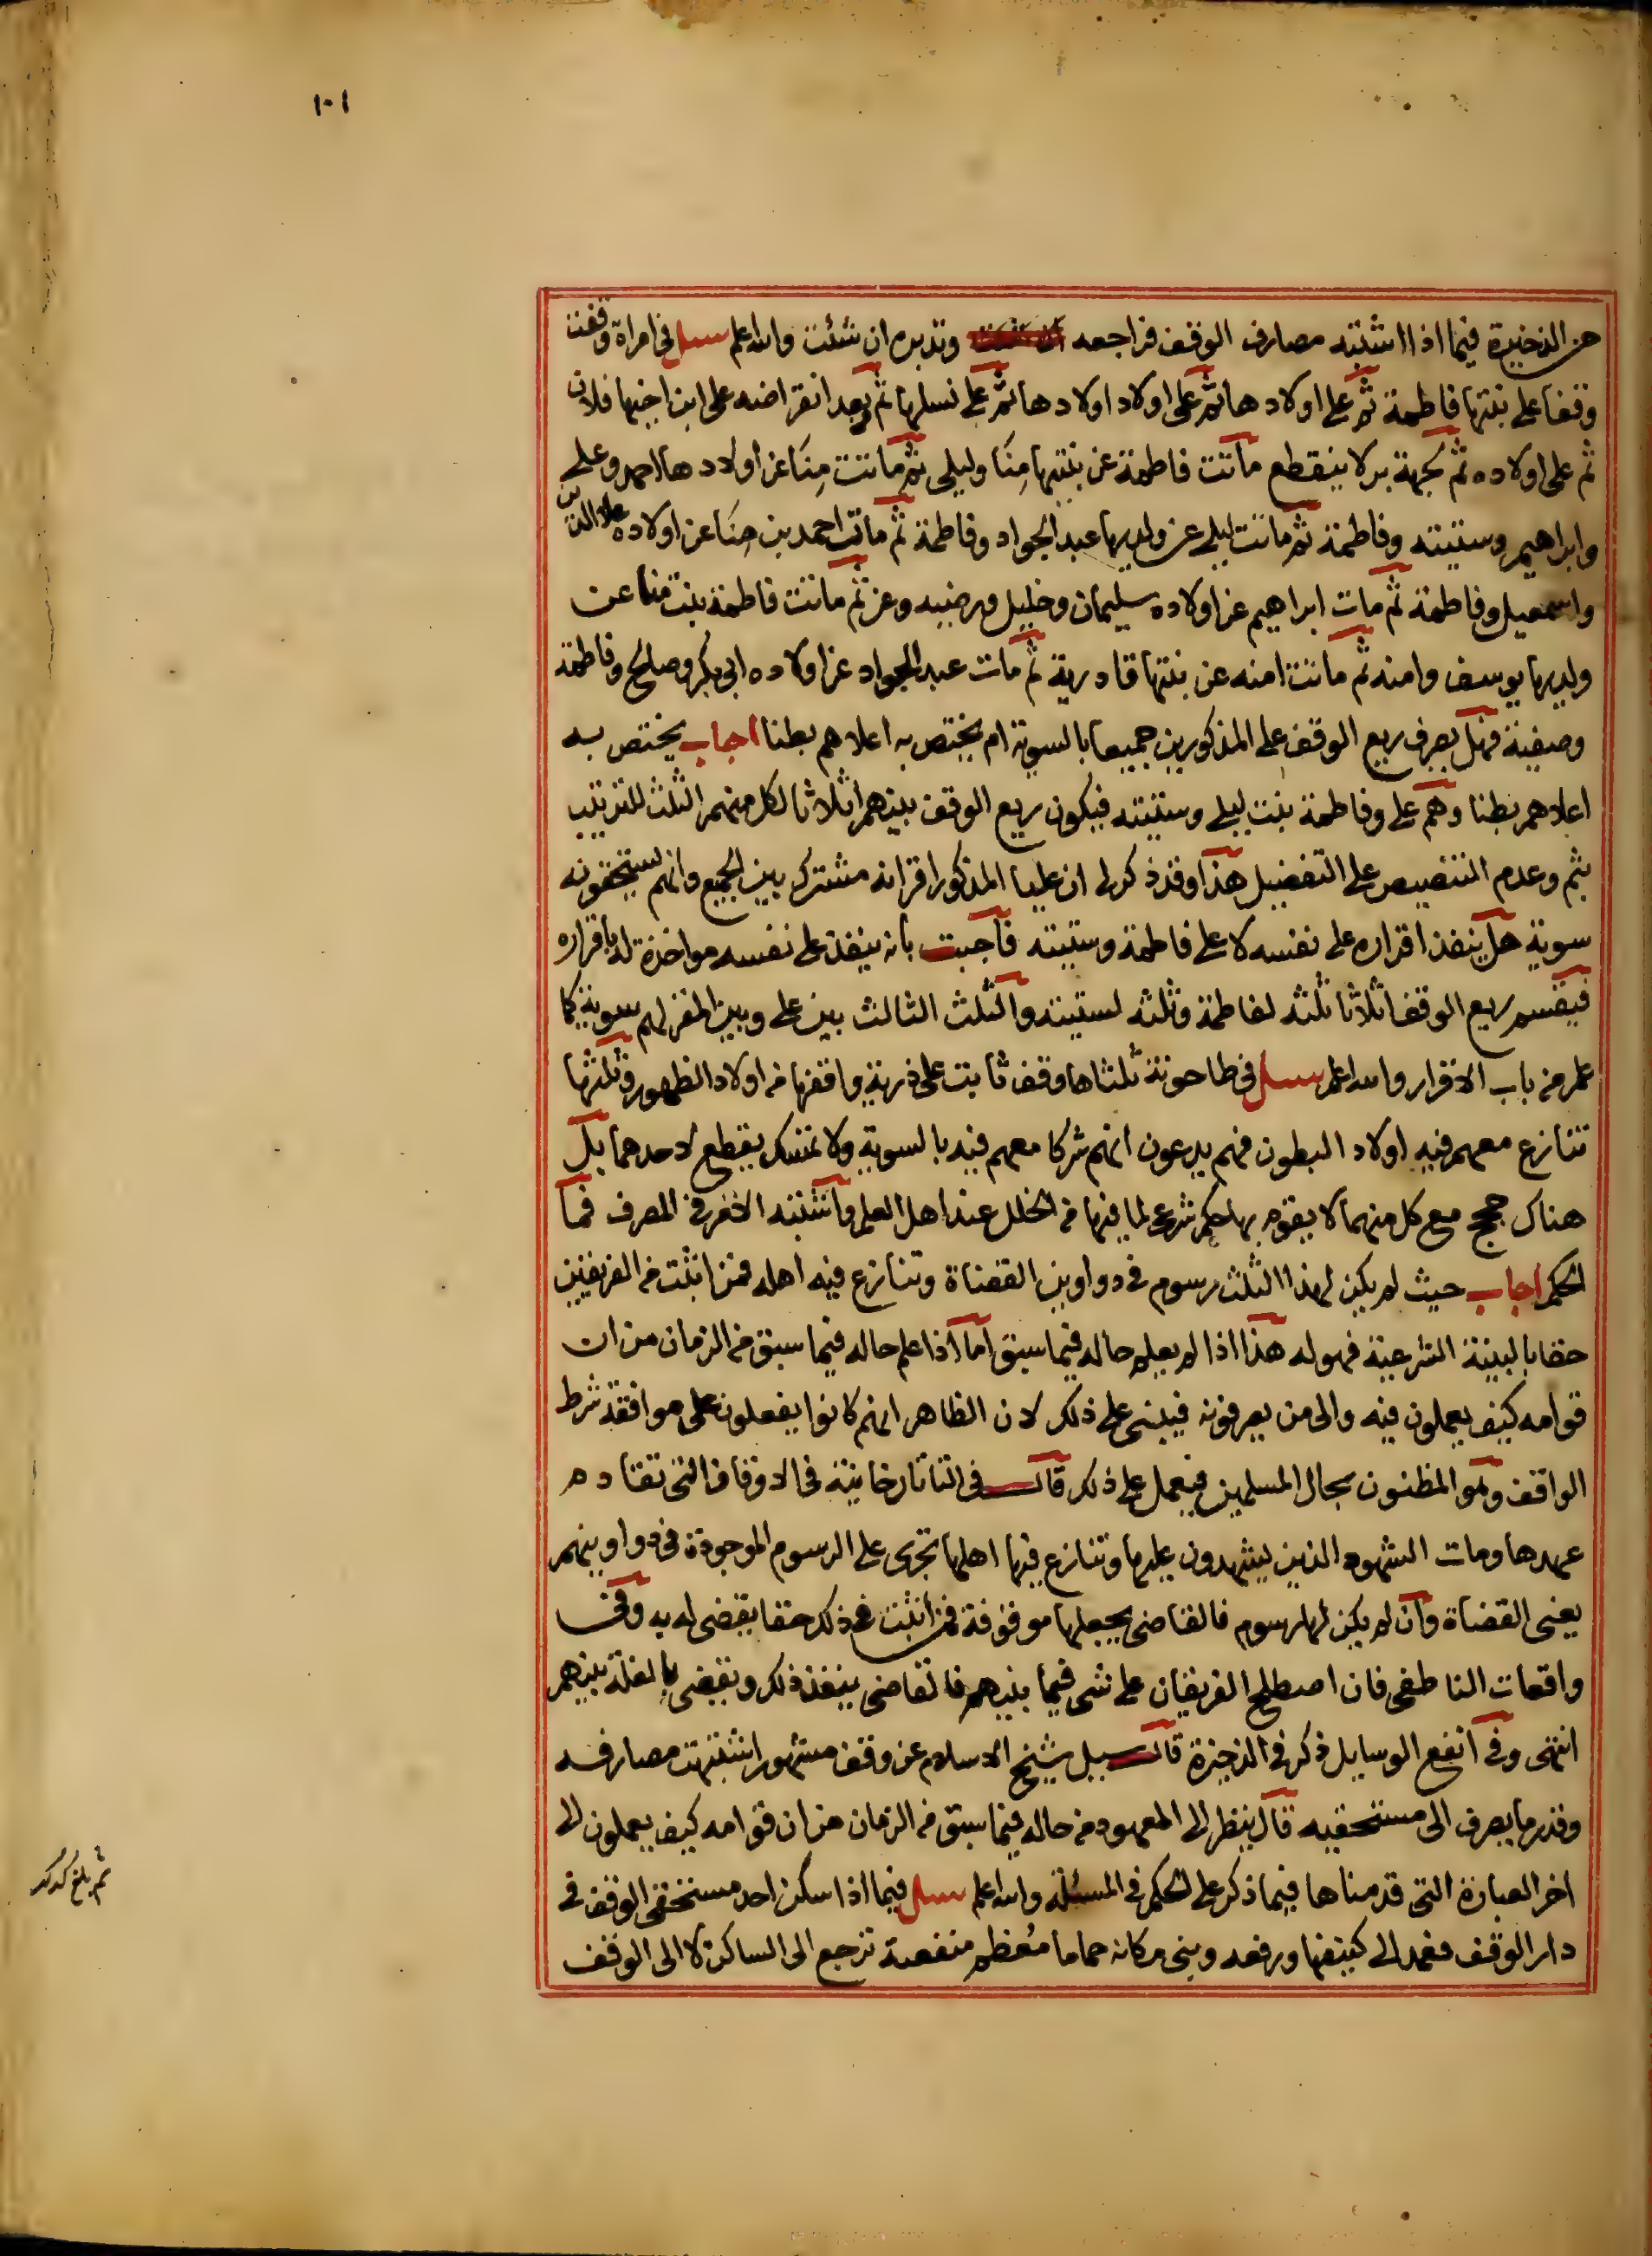 ١٠١
عن الذخيرة فيما اذا اشتبه مصارف الوقف فراجعه وتدبره ان شئت والله اعلم سئل في امراة وقفت
وقفا على بنتها فاطمة ثم على اولادها ثم على اولاد اولادها ثم على نسلها ثم بعد انقراضه على ابن اخيها فلان
ثم على اولاده ثم لجهة بر لا ينقطع ماتت فاطمة عن بنتيها مِنَا وليلى ثم ماتت مِنَا عن اولادها احمد وعلى
وابراهيم وستيته وفاطمة ثم ماتت ليلى عن ولديها عبد الجواد وفاطمة ثم مات احمد بن مِنَا عن اولاده علا الدين
واسمعيل وفاطمة ثم مات ابراهيم عن اولاده سليمان وخليل ورضيه وعز ثم ماتت فاطمة بنت منا عن
ولديها يوسف وامنه ثم ماتت امنه عن بنتها قادرية ثم مات عبد الجواد عن اولاده ابي بكر وصلح وفاطمة
وصفية فهل يصرف ريع الوقف على المذكورين جميعا بالسوية ام يختص به اعلاهم بطنا اجاب يختص به
اعلاهم بطنا وهم على وفاطمة بنت ليلى وستيته فيكون ريع الوقف بينهم اثلاثا لكل منهم الثلث للترتيب
بثم وعدم التنصيص على التفضيل هذا وقد ذكر لي ان عليا المذكور اقر انه مشترك بين الجميع وانهم يستحقونه
سوية هل ينفذ اقراره على نفسه لا على فاطمة وستيته فاجبت بانه ينفذ على نفسه مواخذة له باقراره
فيقسم ريع الوقف اثلاثا ثلثه لفاطمة وثلثه لستيته والثلث الثالث بين على وبين المقر لهم سوية كما
علم من باب الاقرار والله اعلم سئل في طاحونة ثلثاها وقف ثابت على ذرية واقفها من اولاد الظهور وثلثها
تنازع معهم فيه اولاد البطون فهم يدعون انهم شركا معهم فيه بالسوية ولا تمسك يقطع لاحدهما بل
هناك حجج مع كل منهما لا يقوم بها حكم شرعي لما فيها من الخلل عند اهل العلم واشتبه الامر في المصرف فما
الحكم اجاب حيث لم يكن لهذا الثلث رسوم في دواوين القضاة وتنازع فيه اهله فمن اثبت من الفريقين
حقا بالبينة الشرعية فهو له هذا اذا لم يعلم حاله فيما سبق اما اذا علم حاله فيما سبق من الزمان من ان
قوامه كيف يعملون فيه والى من يصرفونه فيبنى على ذلك لان الظاهر انهم كانوا يفعلون على موافقة شرط
الواقف وهو المظنون بحال المسلمين فيعمل على ذلك قال في التاتارخانية في الاوقاف التي تقادم
عهدها ومات الشهود الذين يشهدون عليها وتنازع فيها اهلها تجرى على الرسوم الموجودة في دواوينهم
يعني القضاة وان لم يكن لها رسوم فالقاضي يجعلها موقوفة فمن اثبت في ذلك حقا يقضى له به وفي
واقعات الناطفي فان اصطلح الفريقان على شي فيما بينهم فالقاضي ينفذ ذلك ويقضى بالغلة بينهم
انتهى وفي انفع الوسايل ذكر في الذخيرة قال سيل شيخ الاسلام عن وقف مشهور اشتبهت مصارفه
وقدر ما يصرف الى مستحقيه قال ينظر الى المعهود من حاله فيما سبق من الزمان من ان قوامه كيف يعملون الى
اخر العبارة التي قدمناها فيما ذكر على الحكم في المسئلة والله اعلم سئل فيما اذا سكن احد مستحقي الوقف في
دار الوقف فعمد الى كنيفها ورفعه وبنى مكانه حماما مُعظم منفعته ترجع الى الساكن لا الى الوقف